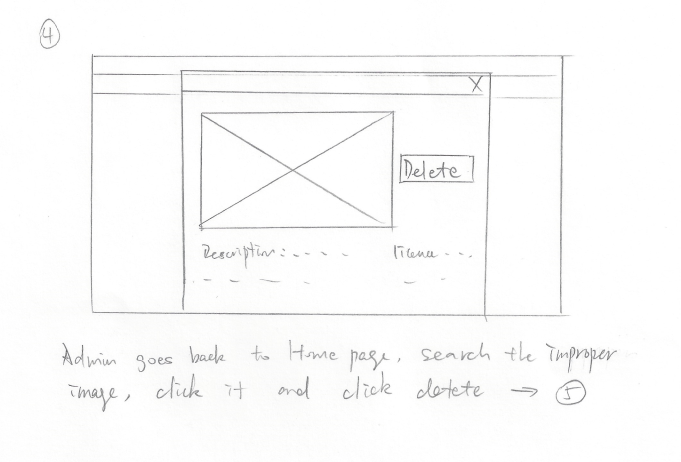 4
X
Delete
Description: - - - - license - - .
Admin goes back to Home page, search the improper
image, click it and click detete → 5